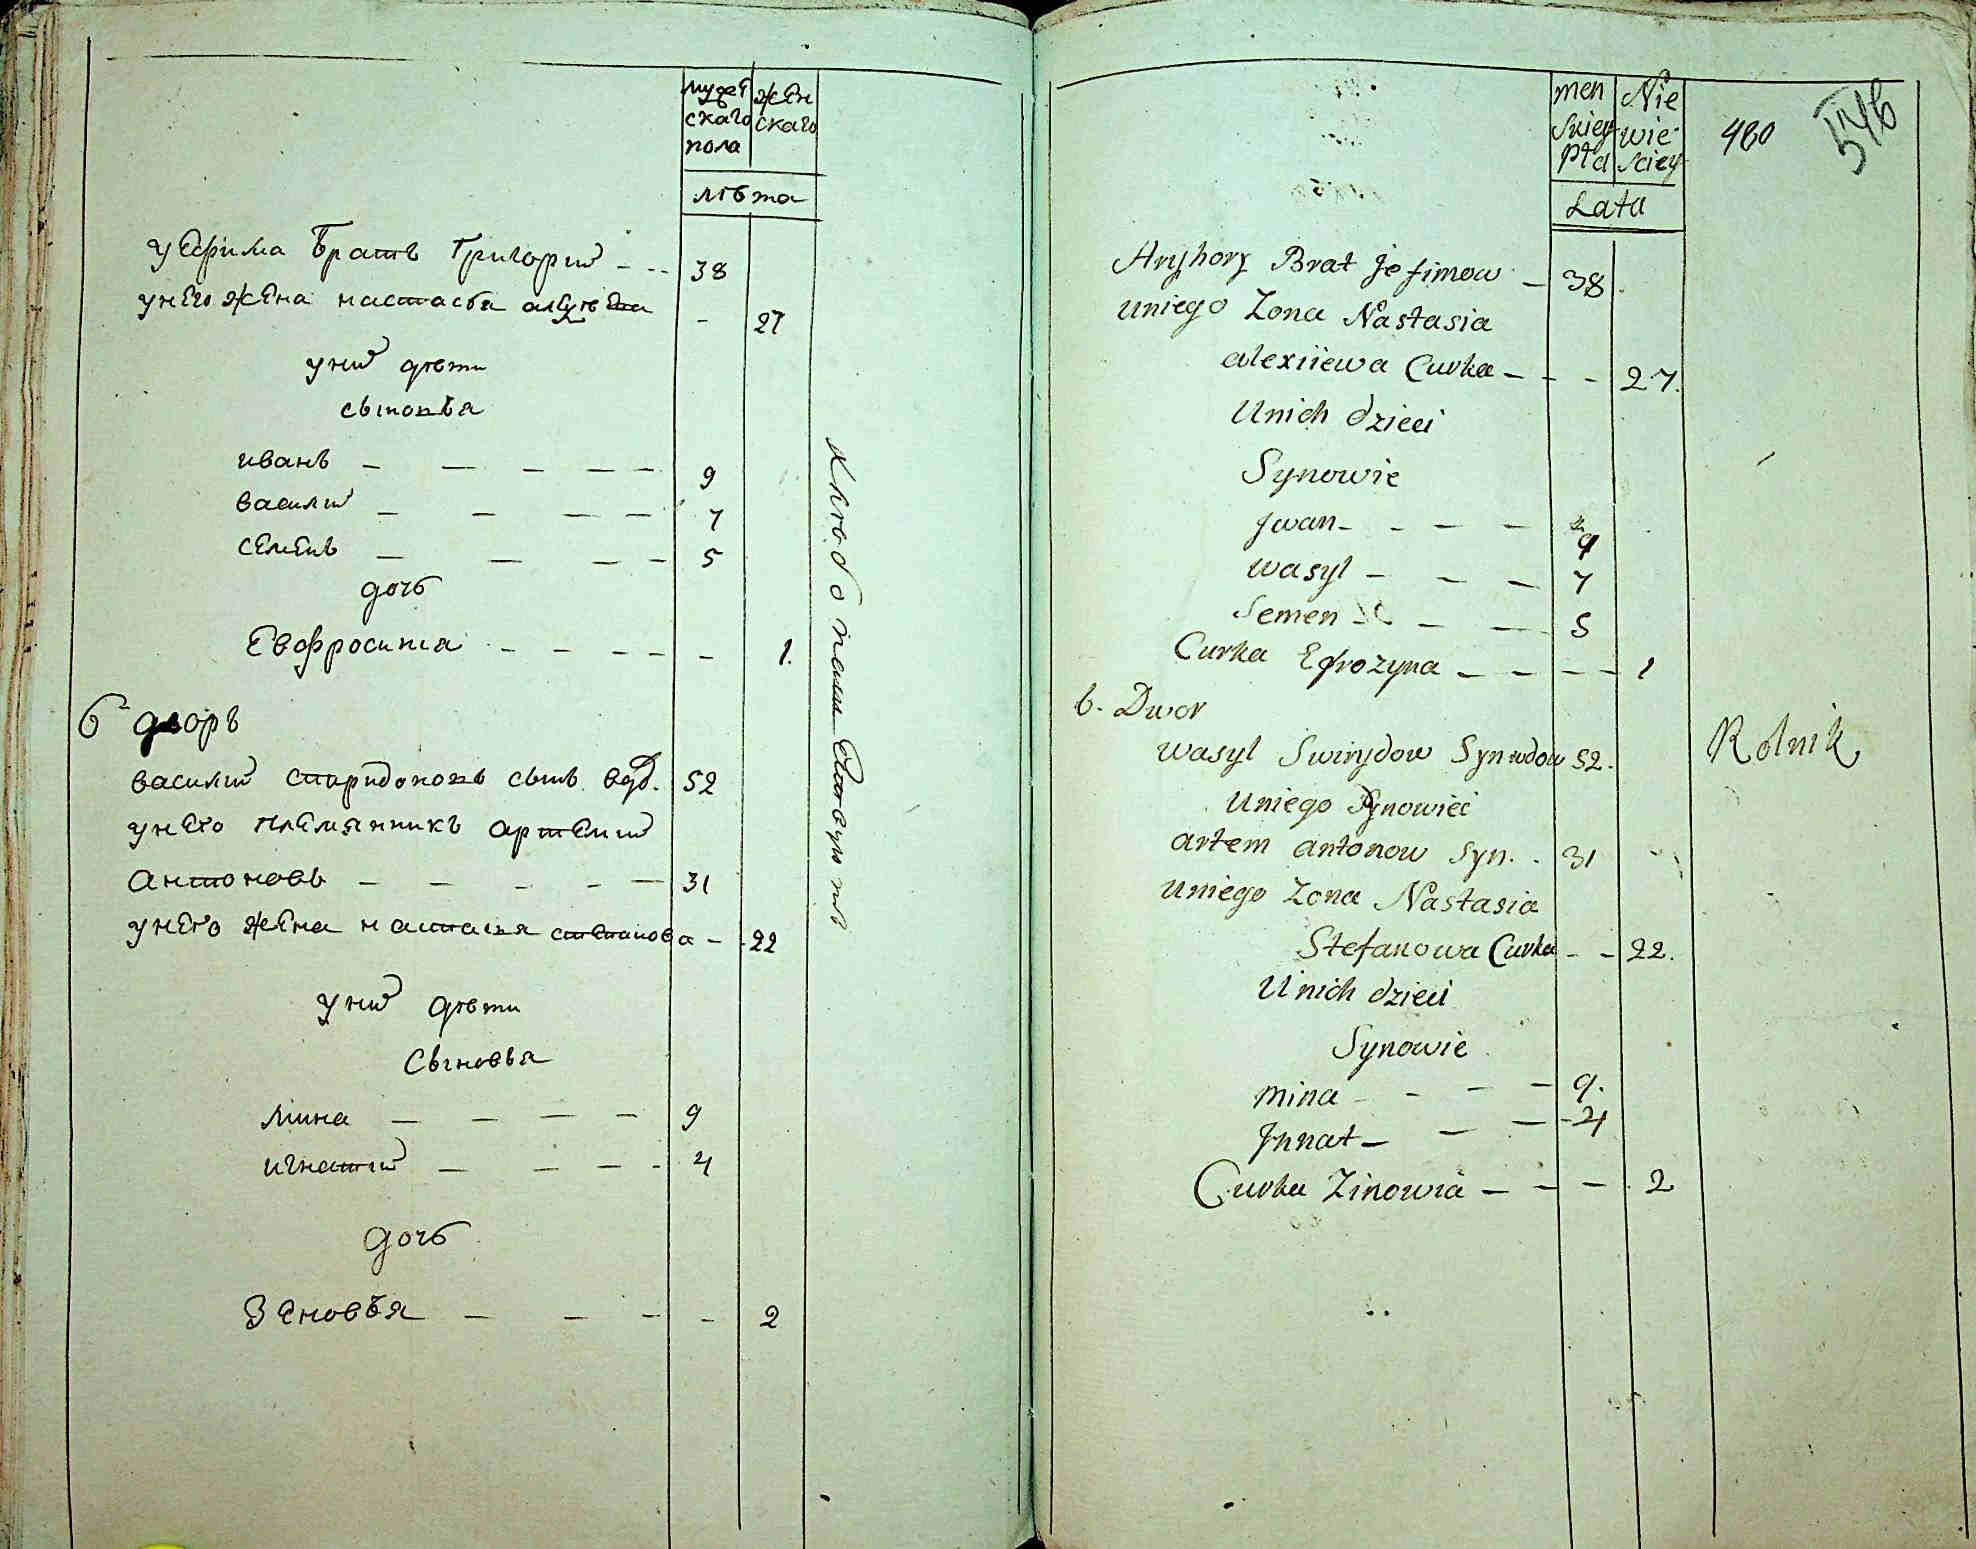 мужескаго пола
женскаго
лѣта
у Ефима братъ Григорий 38
у него жена настасья 27
у них дѣти
сыновья
иванъ 9
василий 7
семенъ 5
дочь
Евфросиния 1.
6 дворъ
василий спиридоновъ сынъ вдо. 52
у него племянникъ артемий
антоновъ 31
у него жена настасья степанова 22
у них дѣти
Сыновья
мина 9
игнатий 4
дочь
Зеновья 2
хлѣбопашествуютъ
men
skiey
Płci
Nie
wie
sciey
Lata
480
546
Aryhory Brat Jefimow 38
Uniego Zona Nastasia
alexiiewa Curka 27.
Unich dzieci
Synowie
Jwan 9
Wasyl 7
Semen 5
Curka Efrozyna 1
6. Dwor
Wasyl Swirydow Syn wdow 52.
Rolnik
Uniego Synowiec
artem antonow syn. 31
Uniego Zona Nastasia
Stefanowa Curka 22.
Unich dzieci
Synowie
mina 9.
Jhnat 4
Curka Zinowia 2